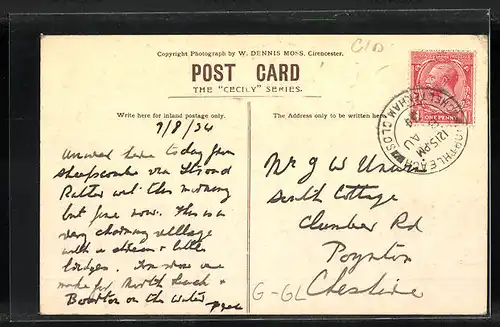 Copyright Photograph by W. DENNIS MOSS, Cirencester.
POST CARD
THE "CECILY" SERIES.
Write here for inland postage only.
The Address only to be written here.
9/8/34
Arrived here today from
Sheepscombe via Stroud
Rather wet this morning
but fine now. This is a
very charming village
with a stream + little
bridges. Tomorrow we
make for North Leach +
Bourton on the Water
Mr G W
South Cottage
Clumber Rd
Poynton
Cheshire
G-GL
ONE PENNY
CHELTENHAM, GLOS
12 15 PM
AU